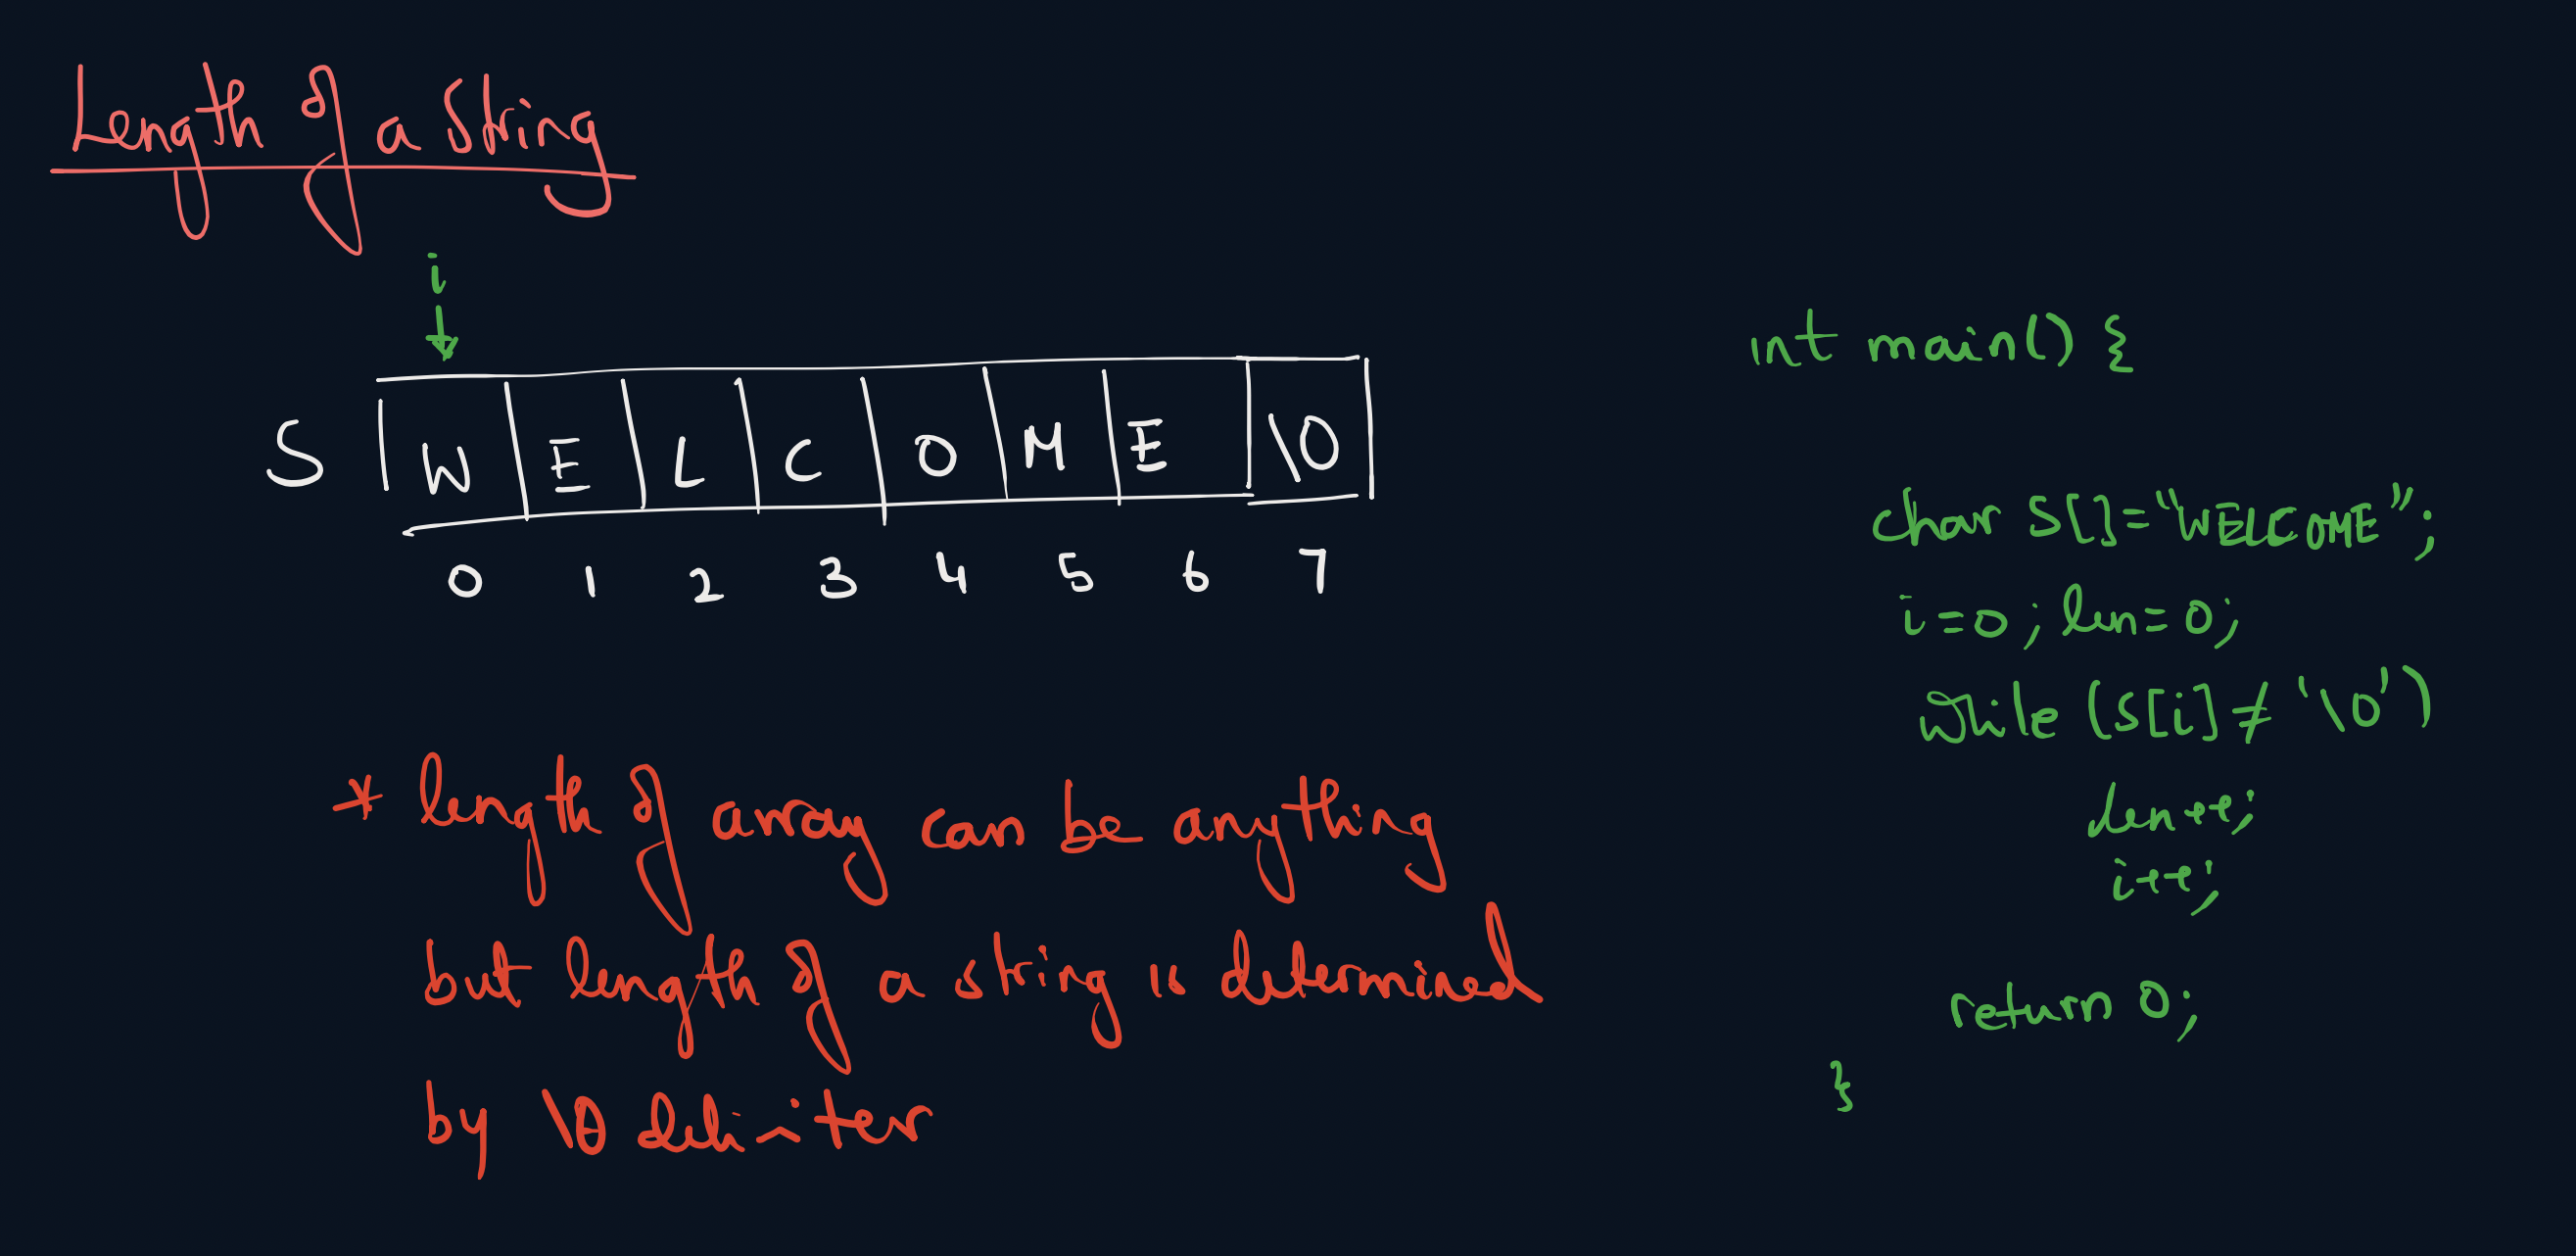 Length of a String
i
S W E L C O M E \0
0 1 2 3 4 5 6 7
* length of array can be anything
but length of a string is determined
by \0 delimiter
int main() {
char S[]="WELCOME";
i=0; len=0;
while (S[i]≠'\0')
len++;
i++;
return 0;
}